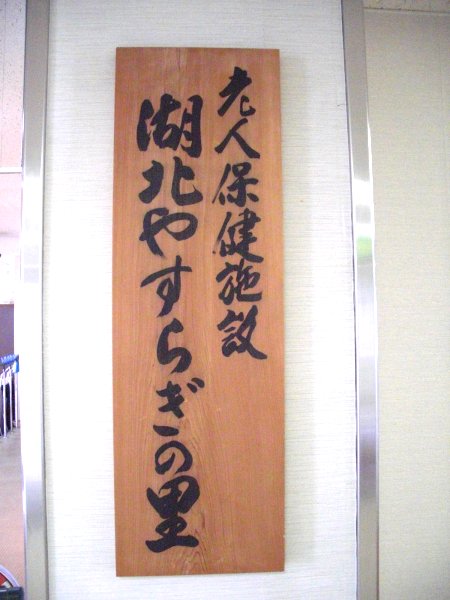 老人保健施設
湖北やすらぎの里